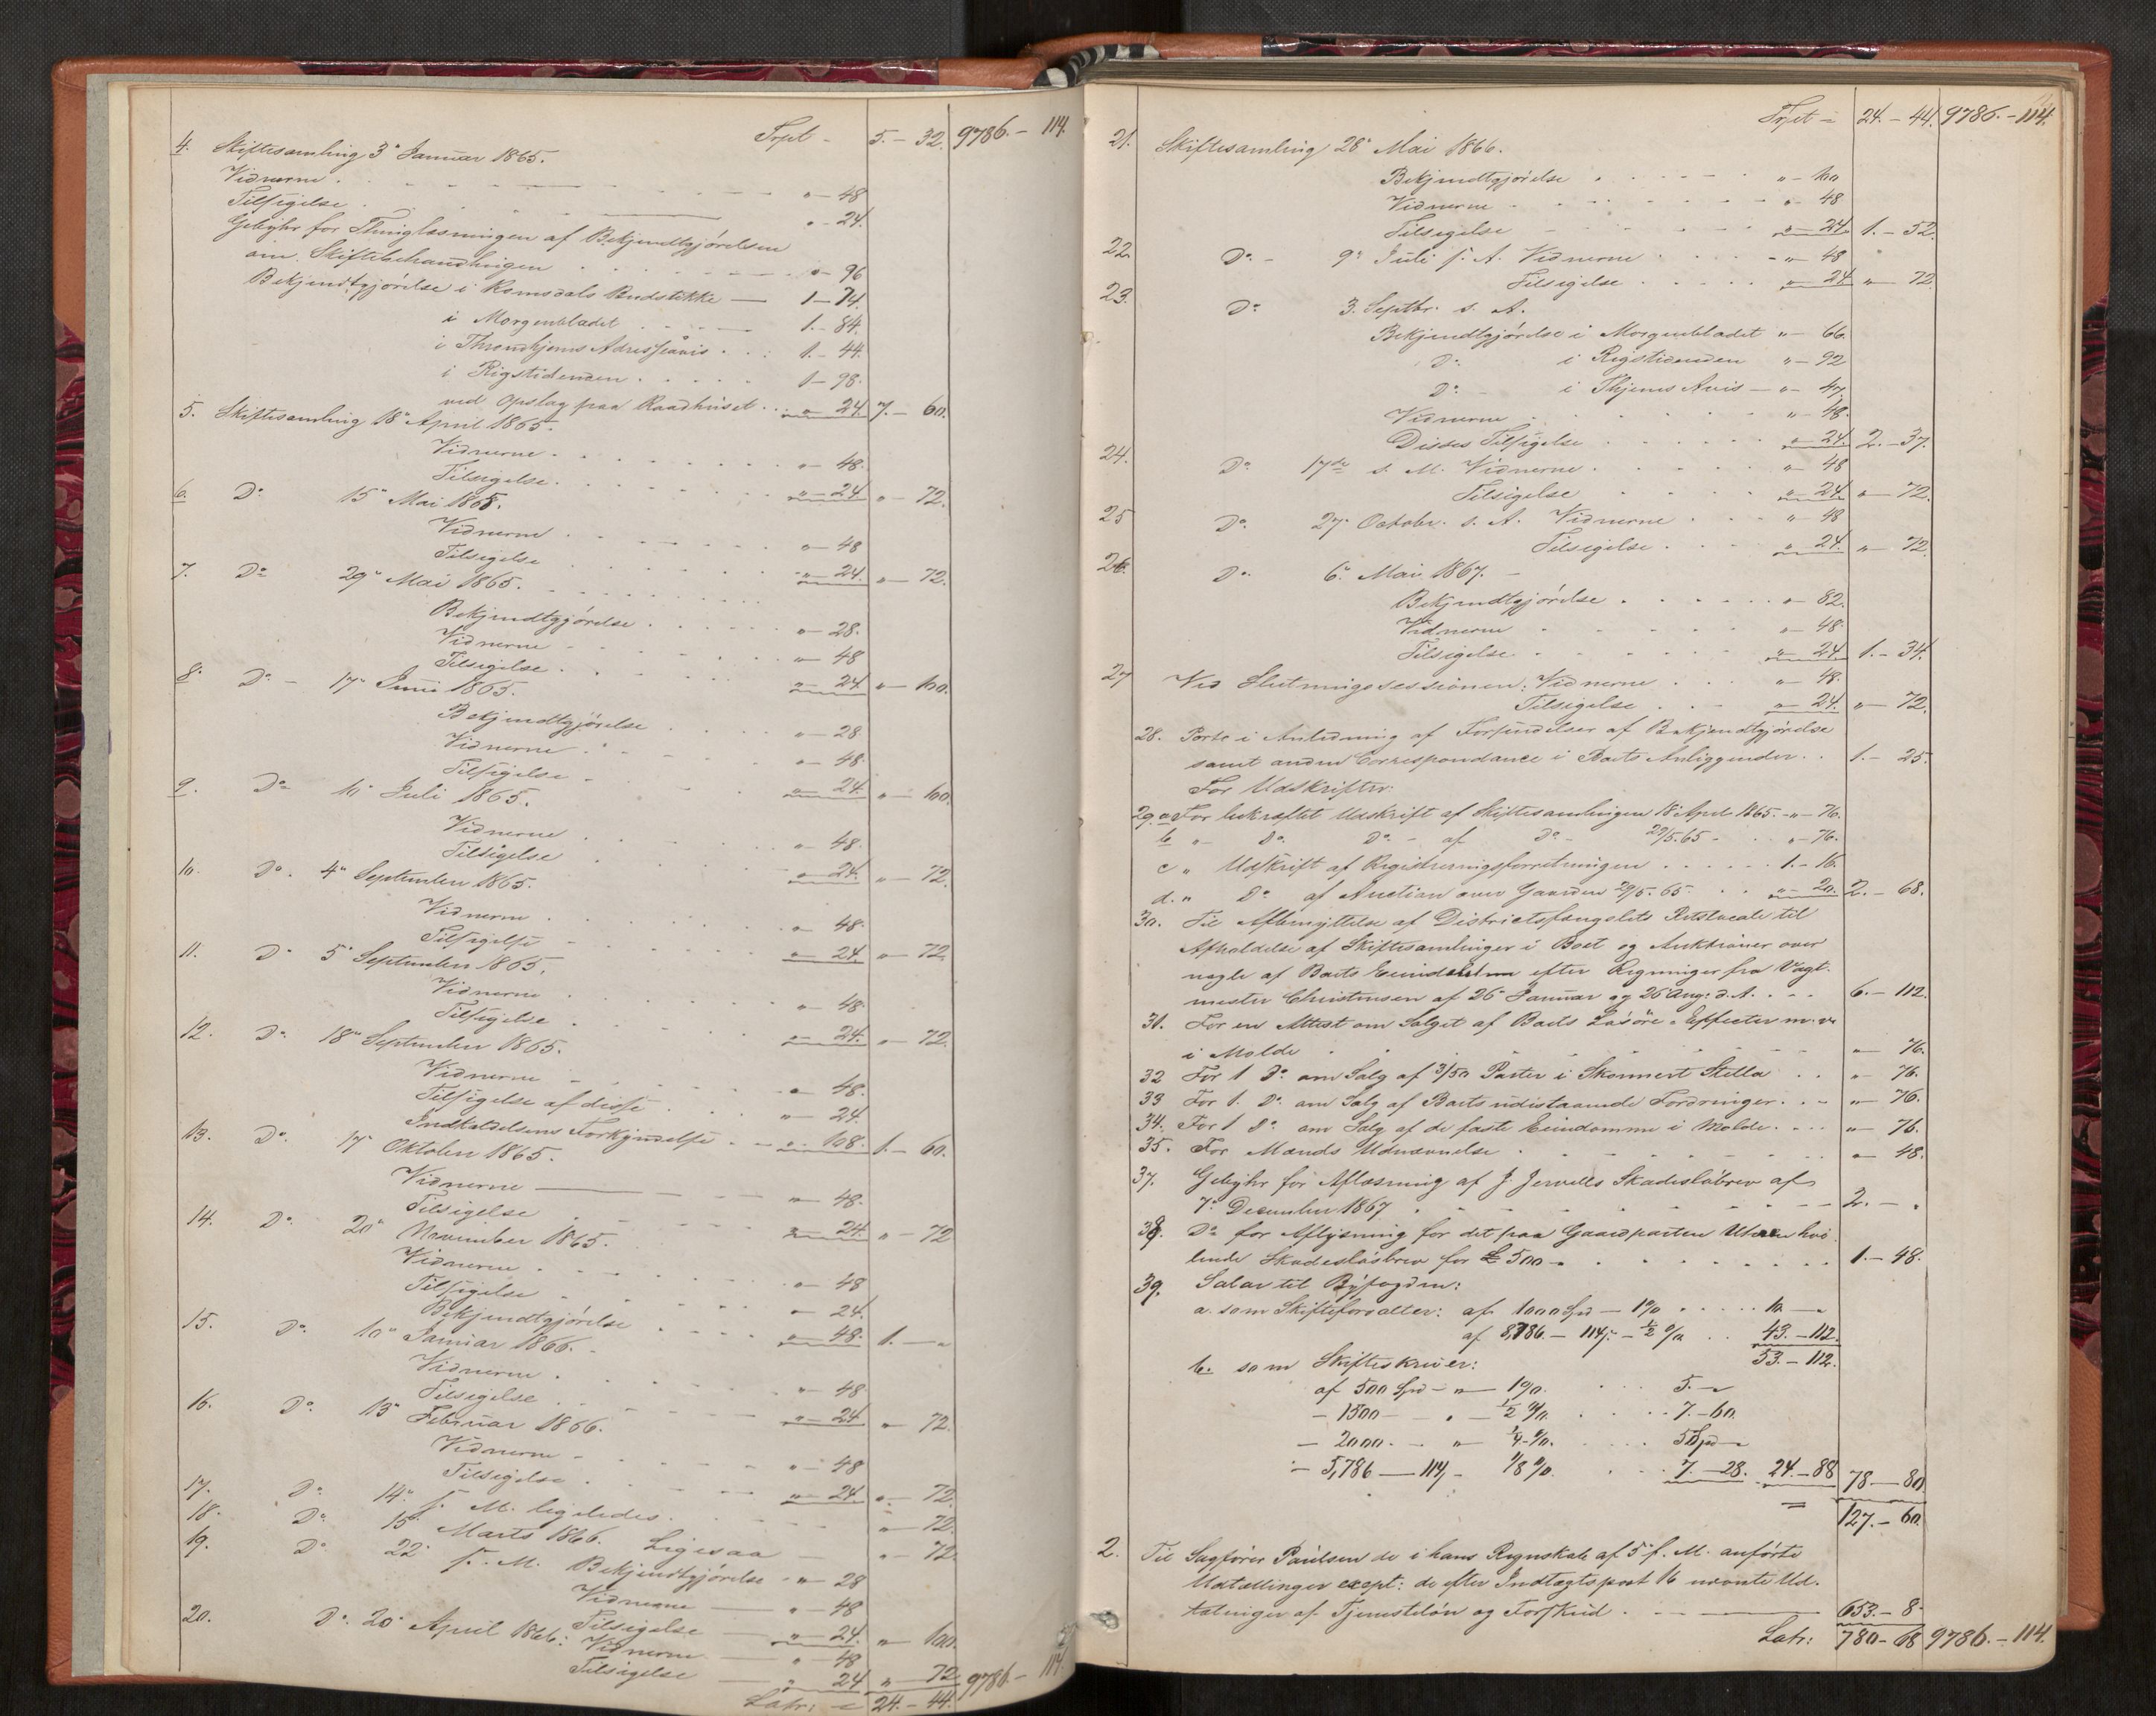 Trspt - 5. - 32. 9786. - 114.
4. Skiftesamling 3' Januar 1865.
Vidnerne . „ - 48
Tilsigelse . „ - 24.
Gebyhr for Thinglæsningen af Bekjendtgjørelsen
om Skiftebehandlingen „ - 96
Bekjendtgjørelse i Romsdals Budstikke — 1 - 74.
i Morgenbladet 1. - 84.
i Throndhjems Adresseavis . . : 1. - 44.
i Rigstidenden . 1 - 98.
ved Opslag paa Raadhuset . . „ - 24. 7. - 60.
5. Skiftesamling 18' April 1865.
Vidnerne . „ - 48.
Tilsigelse . „ - 24 „ - 72.
6. D° 15' Mai 1865.
Vidnerne „ - 48
Tilsigelse „ - 24. „ - 72.
7. D° 29' Mai 1865.
Bekjendtgjørelse . „ - 28.
Vidnerne „ - 48
Tilsigelse . „ - 24 „ - 100.
8. D° - 17' Juni 1865.
Bekjendtgjørelse „ - 28
Vidnerne . „ - 48.
Tilsigelse - „ - 24. „ - 100.
9. D° 10' Juli 1865.
Vidnerne „ - 48.
Tilsigelse „ - 24. „ - 72.
10. D°. 4' September 1865.
Vidnerne . „ - 48.
Tilsigelse „ - 24. „ - 72.
11. D° 5' September 1865.
Vidnerne „ - 48.
Tilsigelse . „ - 24. „ - 72.
12. D° 18' September 1865.
Vidnerne - „ - 48.
Tilsigelse af disse . „ - 24.
Indkaldelsens Forkyndelse . - „ - 108. 1. - 60.
13. D°. 17' Oktober 1865.
Vidnerne — „ - 48.
Tilsigelse „ - 24. „ - 72
14. D°. 20' November 1865.
Vidnerne . „ - 48
Tilsigelse . „ - 24.
Bekjendtgjørelse „ - 48. 1. - „
15. D°. 10' Januar 1866. -
Vidnerne . „ - 48
Tilsigelse . „ - 24 „ - 72.
16. D°. 13' Februar 1866.
Vidnerne - „ - 48
Tilsigelse . „ - 24 „ - 72.
17. D°. 14' s. M. ligeledes. „ - 72.
18. D°. 15' Marts 1866. Ligesaa „ - 72.
19. D°. 22' s. M. Bekjendtgjørelse - „ - 28
Vidnerne — „ - 48
Tilsigelse — „ - 24. „ - 100.
20. D°. 20' April 1866: Vidnerne — „ - 48
Tilsigelse — „ 24 „ - 72. 9786. - 114.
Latr: 24. - 44.
Trspt - 24. - 44. 9786. - 114.
21. Skiftesamling 28' Mai 1866.
Bekjendtgjørelse . „ - 100
Vidnerne „ - 48
Tilsigelse „ - 24 1. - 52.
22. D°. - 9' Juli s. A. Vidnerne . - „ 48
Tilsigelse . „ - 24 „ - 72.
23. D° 3. Septbr. s. A.
Bekjendtgjørelse i Morgenbladet „ - 66.
D° i Rigstidenden „ - 92
D° - i Thjems Avis — „ - 47
Vidnerne „ - 48.
Disses Tilsigelse „ - 24. 2. - 37.
24. D° 17de s. M. Vidnerne . „ - 48
Tilsigelse „ - 24 „ - 72.
25 D°. 27' Octobr. s. A. Vidnerne . „ - 48
Tilsigelse . „ 24. „ - 72.
26. D°. 6' Mai 1867. -
Bekjendtgjørelse . „ - 82.
Vidnerne „ - 48.
Tilsigelse . „ - 24 1. - 34.
27 Ved Slutningssessionen: Vidnerne . „ - 48.
Tilsigelse . „ - 24. „ - 72.
28. Porto i Anledning af Forsendelser af Bekjendtgjørelse
samt anden Correspondance i Boets Anliggender . . 1. - 25.
For Udskrifter:
29. a For bekræftet Udskrift af Skiftesamlingen 18' April 1865. - „ - 76.
b „ D° D° - af D° - 29/5. 65 - „ - 76.
c „ Udskrift af Registreringsforretningen 1. - 16.
d. „ D° af Auction over Gaarden 29/5. 65 . „ - 20. 2. - 68.
30. Til Afbenyttelse af Districtsfængslets Retslocale til
Afholdelse af Skiftesamlinger i Boet og Auktioner over
nogle af Boets Eiendele efter Regninger fra Vagt-
mester Christensen af 26' Januar og 26' Aug: d. A. . . . 6. - 112.
31. For en Attest om Salget af Boets Løsøre - Effecter m. v.
i Molde „ - 76.
32 For 1 D°. om Salg af 3/50 Parter i Skonnert Stella . . „ - 76.
33 For 1. D°. om Salg af Boets udistaaende Fordringer . . - „ - 76.
34. For 1 D°. om Salg af de faste Eiendomme i Molde . . . . „ - 76.
35. For Mænds Udnævnelse „ - 48.
37. Gebyhr for Aflæsning af J. Jervells Skadesløsbrev af
7' December 1867 2. - „
38. D° for Aflysning for det paa Gaardparten hvi-
lende Skadesløsbrev for £ 500 - 1. - 48.
39. Salar til Byfogden:
a. som Skifteforvalter: af 1000 Spd - 1% . . . . 10 - „
af 8,786. - 114, - 1/2 % . . 43. - 112.
53. - 112.
b. som Skifteskriver:
af 500 Spd - „ - 1%. . 5. - „
- 1500 - „ - 1/2 %. . 7. - 60.
- 2000. - „ 1/4 %. . 5 Spd - „
- 5,786 - 114, - 1/8 %. . 7. - 28. 24. - 88 78 - 80.
= 127. - 60.
2. Til Sagfører Paulsen de i hans Regnskab af 5' f. M. anførte
Udtællinger except: de efter Indtægtspost 16 nævnte Ud-
tælinger af Tjenesteløn og Forskud . 653. - 8.
Latr: 780 - 68 9786. - 114.